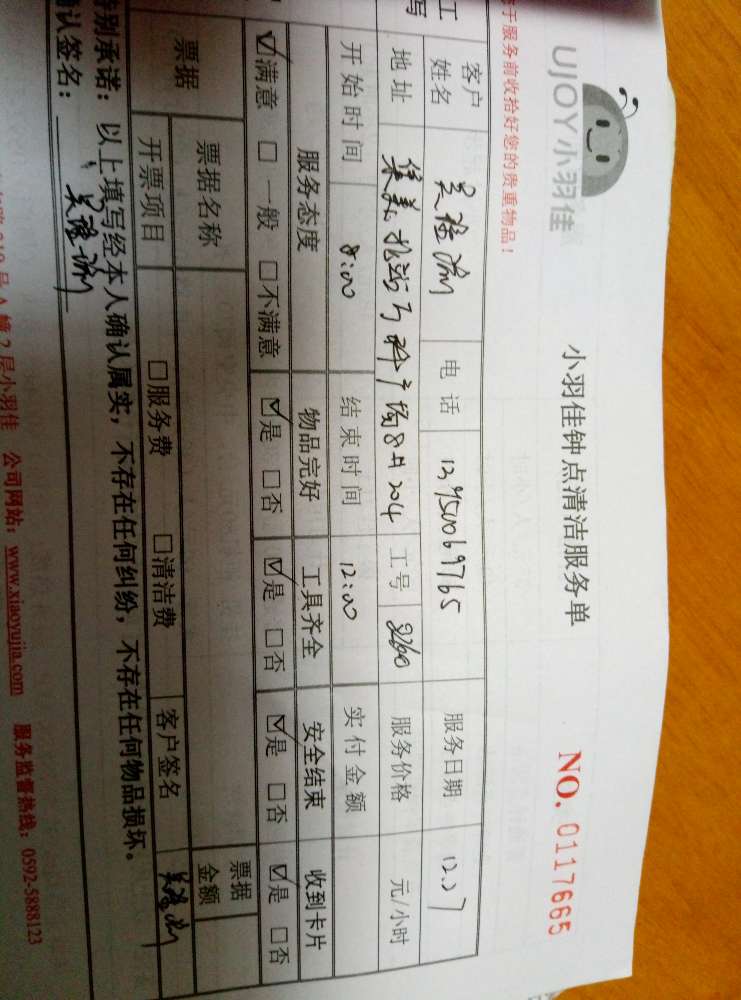 UJOY小羽佳
小羽佳钟点清洁服务单
NO. 0117665
于服务前收拾好您的贵重物品！
客户姓名 电话 13950069765 服务日期 12.27
地址 集美 广场8号204 工号 服务价格 元/小时
开始时间 8:00 结束时间 12:00 实付金额
服务态度 物品完好 工具齐全 安全结束 收到卡片
☑满意 □一般 □不满意 ☑是 □否 ☑是 □否 ☑是 □否 ☑是 □否
票据 票据名称 票据金额
开票项目 □服务费 □清洁费 客户签名
特别承诺：以上填写经本人确认属实，不存在任何纠纷，不存在任何物品损坏。
确认签名：
2层小羽佳 公司网站：www.xiaoyujia.com 服务监督热线：0592-5888123